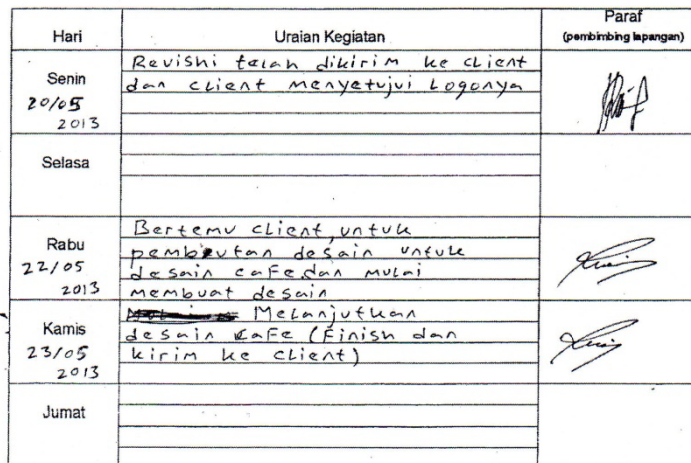 Hari Uraian Kegiatan Paraf
(pembimbing lapangan)
Senin
20/05
2013
Revishi telah dikirim ke client
dan client menyetujui Logonya
Selasa
Rabu
22/05
2013
Bertemu client, untuk
pembuutan desain untuk
desain cafe.dan mulai
membuat desain
Kamis
23/05
2013
Melanjutkan
desain cafe (Finish dan
kirim ke client)
Jumat